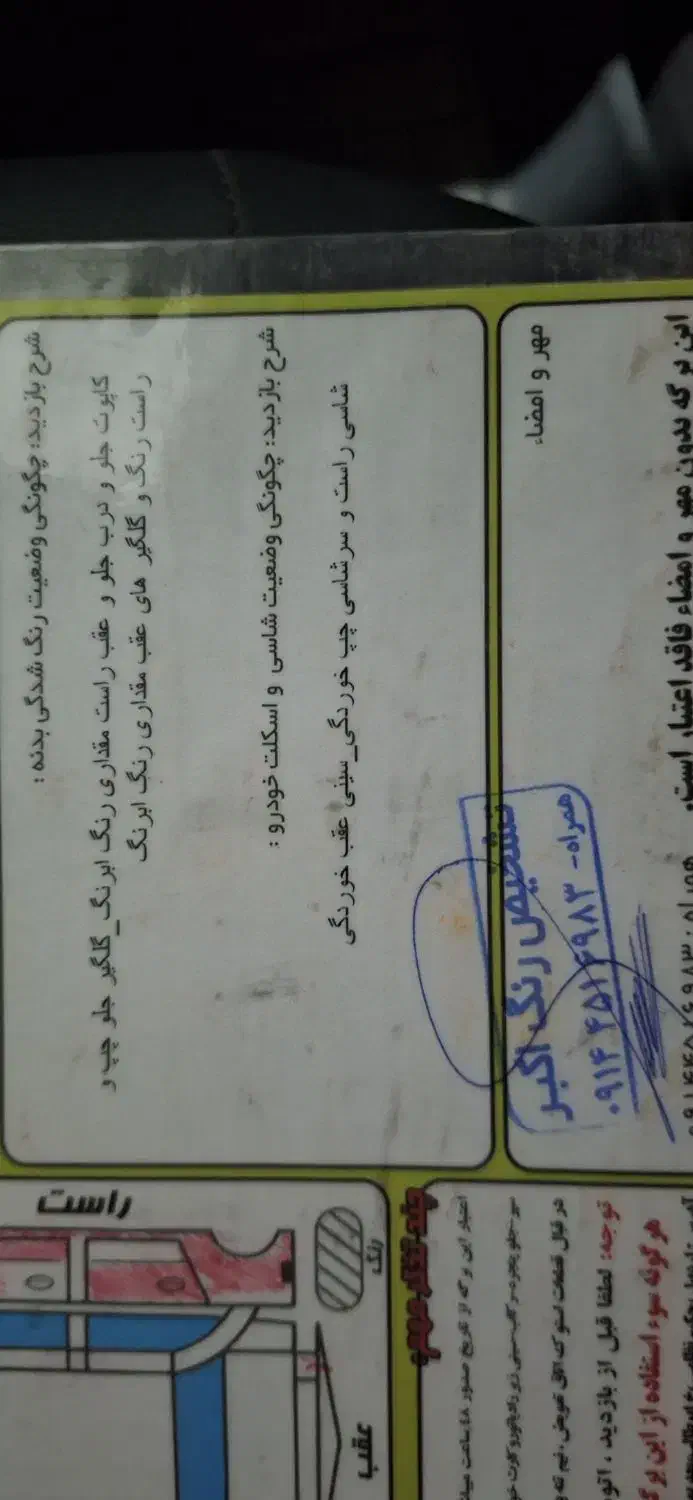 شرح بازدید: چگونگی وضعیت رنگ شدگی بدنه :
کاپوت جلو و درب جلو و عقب راست مقداری رنگ ابرنگ_گلگیر جلو چپ و
راست رنگ و گلگیر های عقب مقداری رنگ ابرنگ
شرح بازدید: چگونگی وضعیت شاسی و اسکلت خودرو :
شاسی راست و سر شاسی چپ خوردگی_سینی عقب خوردگی
مهر و امضاء
تشخیص رنگ اکبر
همراه-
این برگه بدون مهر و امضاء فاقد اعتبار است
راست
رنگ
عقب
چند تذکر مهم:
اعتبار این برگه از تاریخ صدور ۴۸ ساعت
توجه: لطفا قبل از بازدید ، اتو
هرگونه سوء استفاده از این برگ